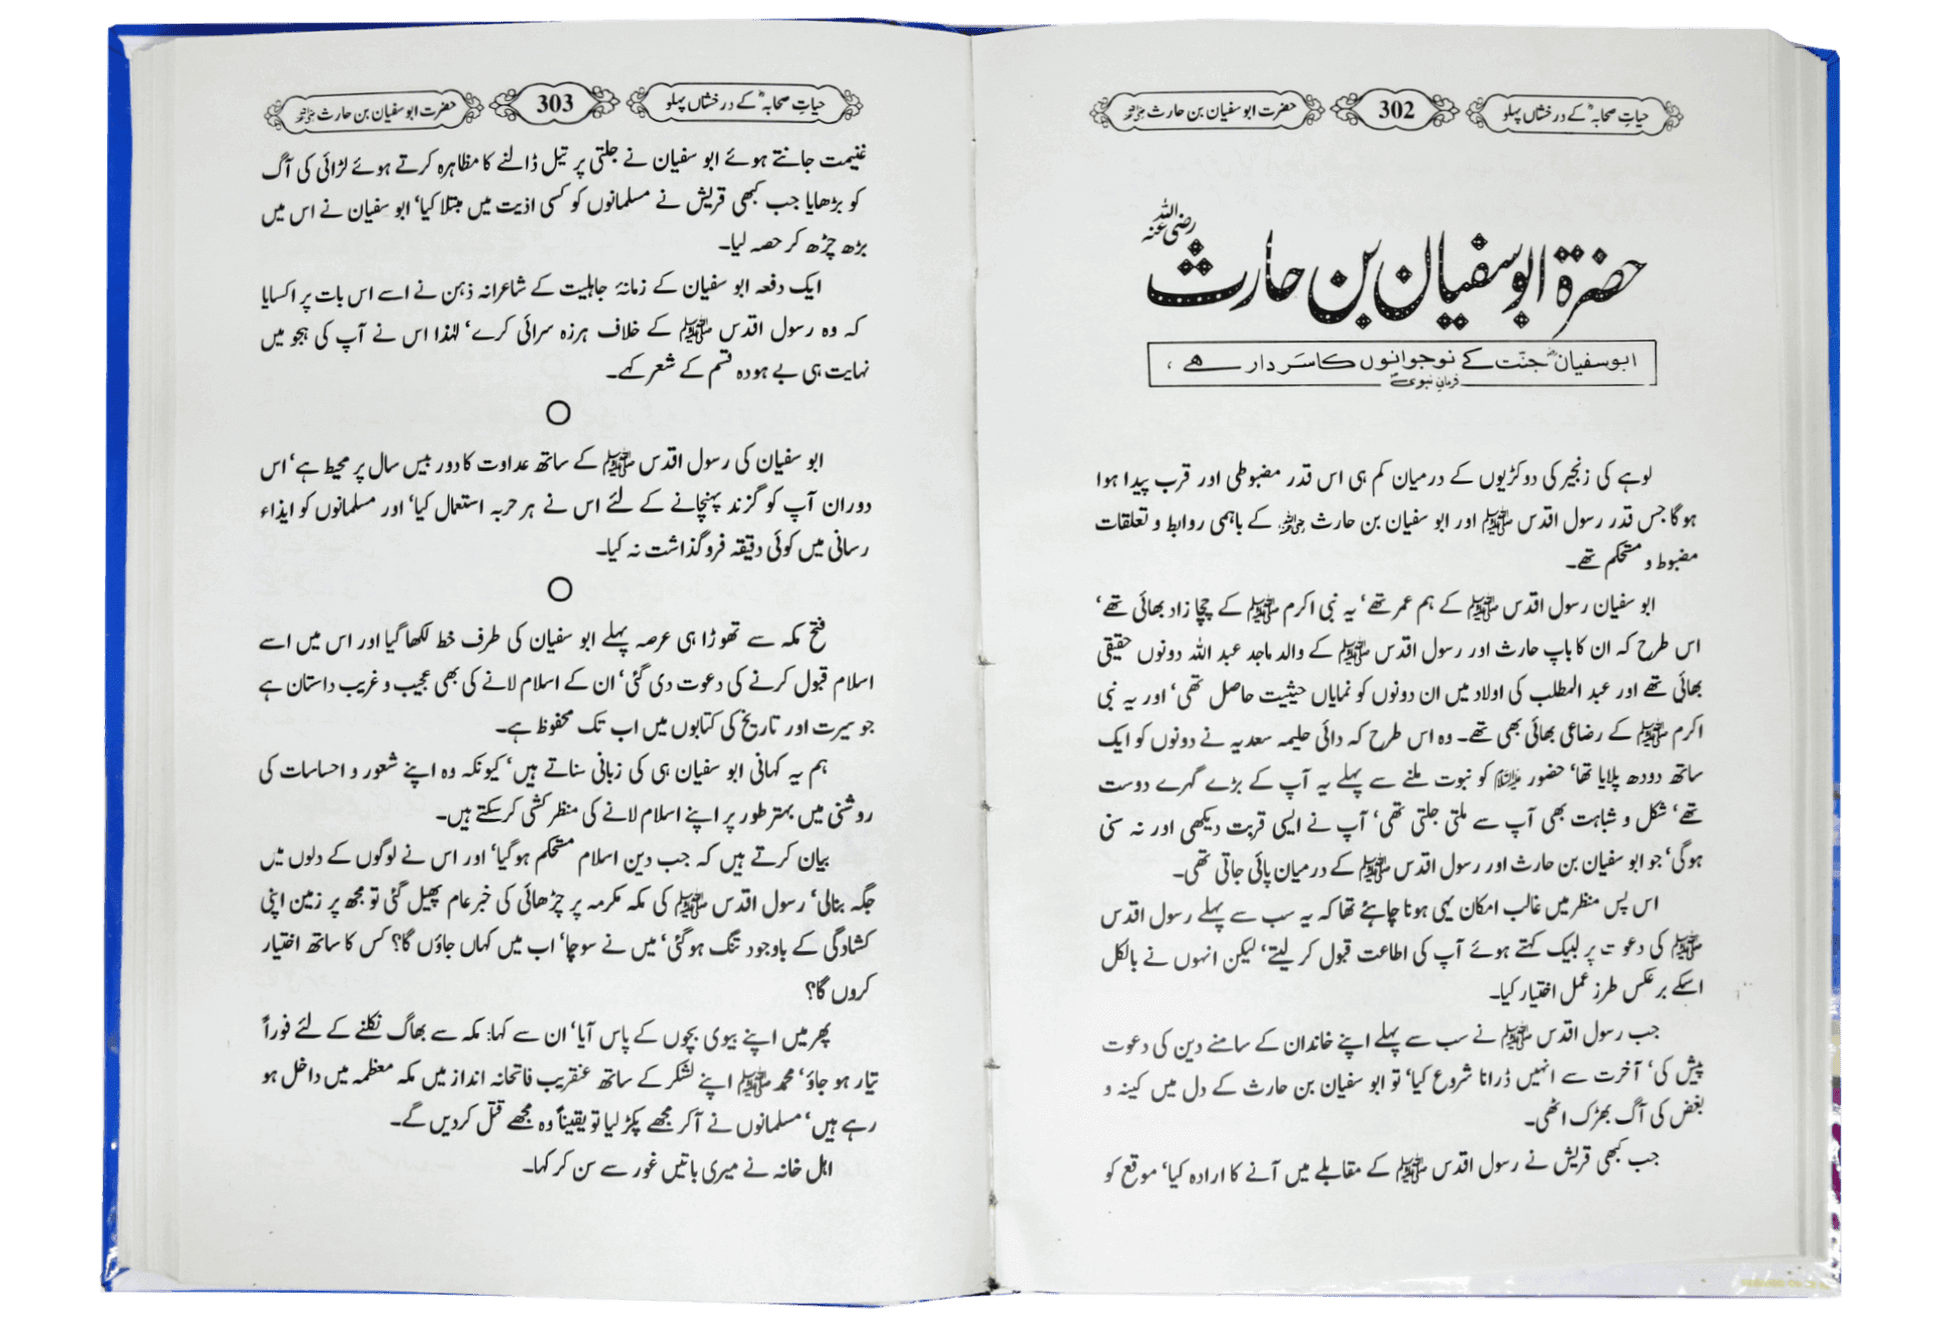 حیاتِ صحابہؓ کے درخشاں پہلو
302
حضرت ابو سفیان بن حارث رضی اللہ عنہ
حضرۃ ابو سفیان بن حارث رضی اللہ عنہ
ابو سفیانؓ جنّت کے نوجوانوں کا سَردار ھے،
فرمانِ نبویؐ
لوہے کی زنجیر کی دو کڑیوں کے درمیان کم ہی اس قدر مضبوطی اور قرب پیدا ہوا
ہوگا جس قدر رسول اقدس ﷺ اور ابو سفیان بن حارث رضی اللہ عنہ کے باہمی روابط و تعلقات
مضبوط و مستحکم تھے۔
ابو سفیان رسول اقدس ﷺ کے ہم عمر تھے‘ یہ نبی اکرم ﷺ کے چچا زاد بھائی تھے‘
اس طرح کہ ان کا باپ حارث اور رسول اقدس ﷺ کے والد ماجد عبد اللہ دونوں حقیقی
بھائی تھے اور عبد المطلب کی اولاد میں ان دونوں کو نمایاں حیثیت حاصل تھی‘ اور یہ نبی
اکرم ﷺ کے رضاعی بھائی بھی تھے۔ وہ اس طرح کہ دائی حلیمہ سعدیہ نے دونوں کو ایک
ساتھ دودھ پلایا تھا‘ حضور علیہ السلام کو نبوت ملنے سے پہلے یہ آپ کے بڑے گہرے دوست
تھے‘ شکل و شباہت بھی آپ سے ملتی جلتی تھی‘ آپ نے ایسی قربت دیکھی اور نہ سنی
ہوگی‘ جو ابو سفیان بن حارث اور رسول اقدس ﷺ کے درمیان پائی جاتی تھی۔
اس پس منظر میں غالب امکان یہی ہونا چاہئے تھا کہ یہ سب سے پہلے رسول اقدس
ﷺ کی دعوت پر لبیک کہتے ہوئے آپ کی اطاعت قبول کر لیتے‘ لیکن انہوں نے بالکل
اسکے برعکس طرز عمل اختیار کیا۔
جب رسول اقدس ﷺ نے سب سے پہلے اپنے خاندان کے سامنے دین کی دعوت
پیش کی‘ آخرت سے انہیں ڈرانا شروع کیا‘ تو ابو سفیان بن حارث کے دل میں کینہ و
بغض کی آگ بھڑک اٹھی۔
جب کبھی قریش نے رسول اقدس ﷺ کے مقابلے میں آنے کا ارادہ کیا‘ موقع کو
حیاتِ صحابہؓ کے درخشاں پہلو
303
حضرت ابو سفیان بن حارث رضی اللہ عنہ
غنیمت جانتے ہوئے ابو سفیان نے جلتی پر تیل ڈالنے کا مظاہرہ کرتے ہوئے لڑائی کی آگ
کو بڑھایا جب کبھی قریش نے مسلمانوں کو کسی اذیت میں مبتلا کیا‘ ابو سفیان نے اس میں
بڑھ چڑھ کر حصہ لیا۔
ایک دفعہ ابو سفیان کے زمانۂ جاہلیت کے شاعرانہ ذہن نے اسے اس بات پر اکسایا
کہ وہ رسول اقدس ﷺ کے خلاف ہرزہ سرائی کرے‘ لہٰذا اس نے آپ کی ہجو میں
نہایت ہی بے ہودہ قسم کے شعر کہے۔
ابو سفیان کی رسول اقدس ﷺ کے ساتھ عداوت کا دور بیس سال پر محیط ہے‘ اس
دوران آپ کو گزند پہنچانے کے لئے اس نے ہر حربہ استعمال کیا‘ اور مسلمانوں کو ایذاء
رسانی میں کوئی دقیقہ فروگذاشت نہ کیا۔
فتح مکہ سے تھوڑا ہی عرصہ پہلے ابو سفیان کی طرف خط لکھا گیا اور اس میں اسے
اسلام قبول کرنے کی دعوت دی گئی‘ ان کے اسلام لانے کی بھی عجیب و غریب داستان ہے
جو سیرت اور تاریخ کی کتابوں میں اب تک محفوظ ہے۔
ہم یہ کہانی ابو سفیان ہی کی زبانی سناتے ہیں‘ کیونکہ وہ اپنے شعور و احساسات کی
روشنی میں بہتر طور پر اپنے اسلام لانے کی منظر کشی کر سکتے ہیں۔
بیان کرتے ہیں کہ جب دین اسلام مستحکم ہوگیا‘ اور اس نے لوگوں کے دلوں میں
جگہ بنالی‘ رسول اقدس ﷺ کی مکہ مکرمہ پر چڑھائی کی خبر عام پھیل گئی تو مجھ پر زمین اپنی
کشادگی کے باوجود تنگ ہوگئی‘ میں نے سوچا‘ اب میں کہاں جاؤں گا؟ کس کا ساتھ اختیار
کروں گا؟
پھر میں اپنے بیوی بچوں کے پاس آیا‘ ان سے کہا: مکہ سے بھاگ نکلنے کے لئے فوراً
تیار ہو جاؤ‘ محمد ﷺ اپنے لشکر کے ساتھ عنقریب فاتحانہ انداز میں مکہ معظمہ میں داخل ہو
رہے ہیں‘ مسلمانوں نے آ کر مجھے پکڑ لیا تو یقیناً وہ مجھے قتل کردیں گے۔
اہل خانہ نے میری باتیں غور سے سن کر کہا۔